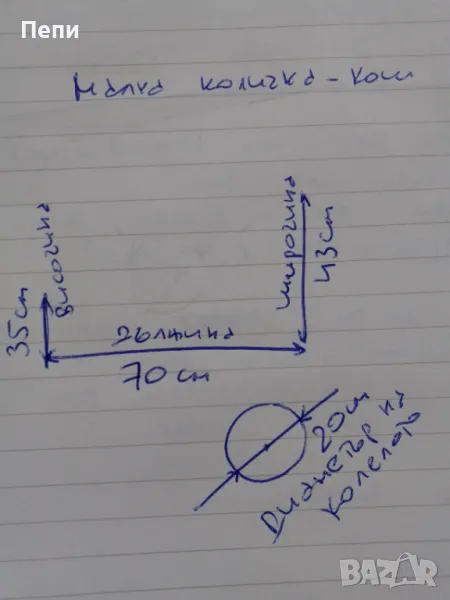 Пепи
Малка количка - кош
височина
35 cm
широчина
43 cm
дължина
70 cm
20 cm
Диаметър на
колелото
BAZAR